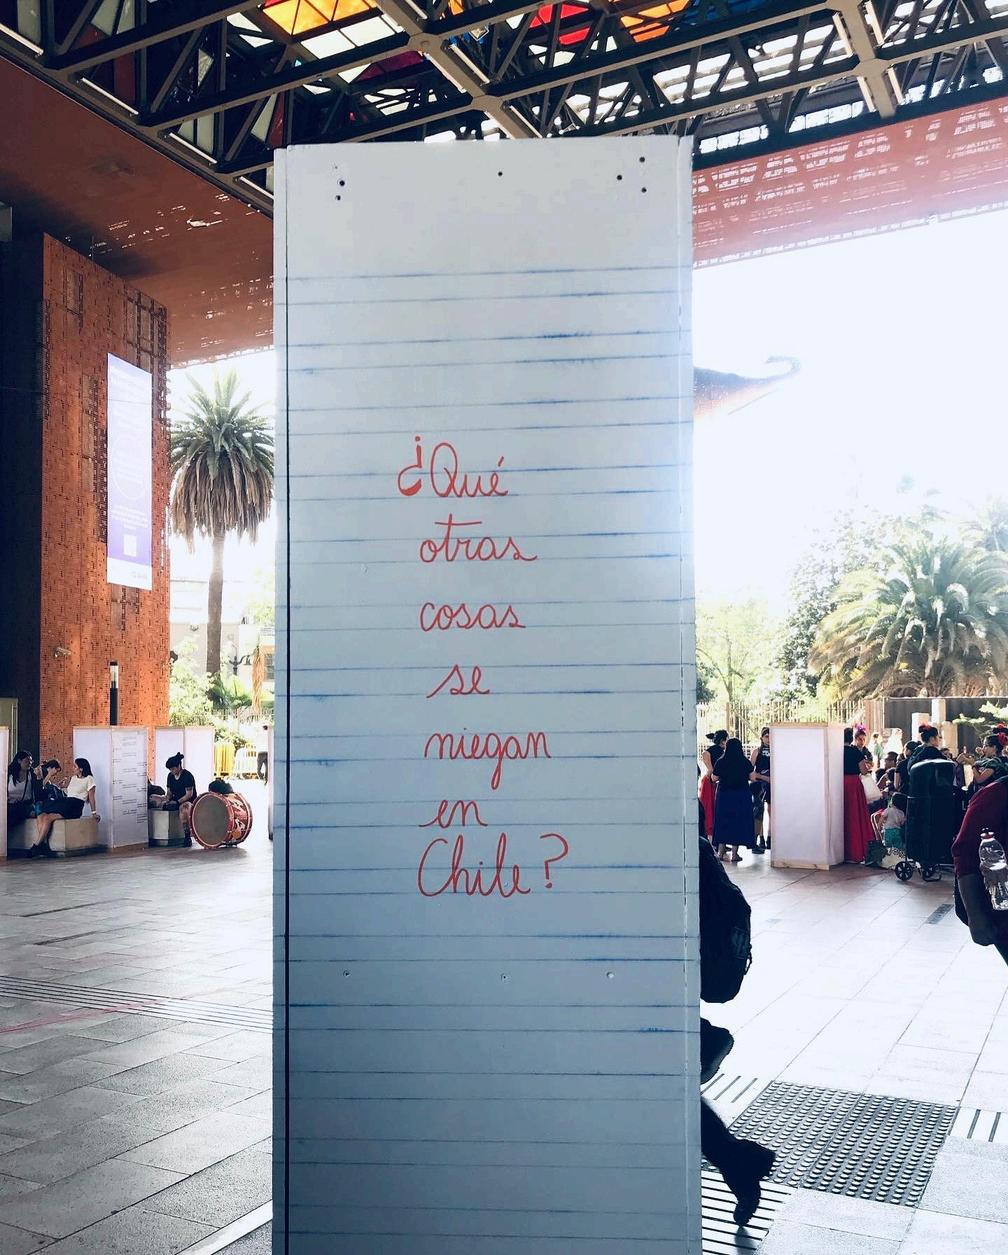 ¿Qué
otras
cosas
se
niegan
en
Chile?